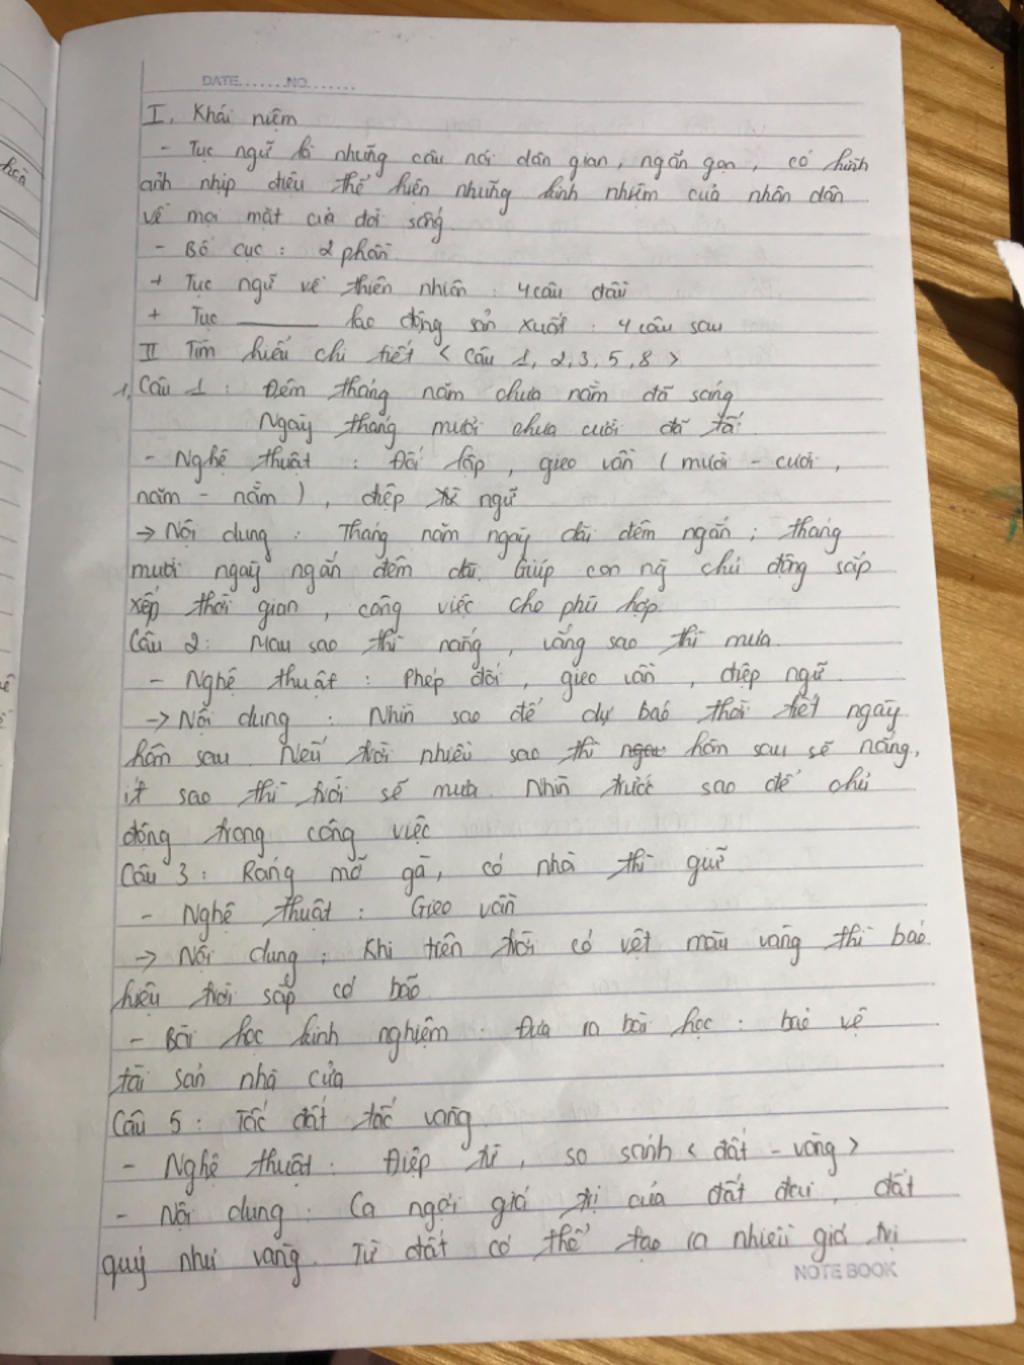 DATE.......NO.......
I, Khái niệm
- Tục ngữ là những câu nói dân gian, ngắn gọn, có hình
ảnh nhịp điệu thể hiện những kinh nhiệm của nhân dân
về mọi mặt của đời sống.
- Bố cục : 2 phần.
+ Tục ngữ về thiên nhiên : 4 câu đầu
+ Tục ______ lao động sản xuất : 4 câu sau
II Tìm hiểu chi tiết < câu 1, 2, 3, 5, 8 >
1, Câu 1 : Đêm tháng năm chưa nằm đã sáng
Ngày tháng mười chưa cười đã tối
- Nghệ thuật : Đối lập, gieo vần ( mười - cười,
năm - nằm ), điệp ngữ
→ Nội dung : Tháng năm ngày dài đêm ngắn ; tháng
mười ngày ngắn đêm dài. Giúp con ng chủ động sắp
xếp thời gian, công việc cho phù hợp.
Câu 2 : Mau sao thì nắng, vắng sao thì mưa.
- Nghệ thuật : Phép đối, gieo vần, điệp ngữ.
→ Nội dung : Nhìn sao để dự báo thời tiết ngày
hôm sau. Nếu trời nhiều sao thì hôm sau sẽ nắng,
ít sao thì trời sẽ mưa. Nhìn trước sao để chủ
động trong công việc
Câu 3 : Ráng mỡ gà, có nhà thì giữ
- Nghệ thuật : Gieo vần
→ Nội dung : Khi trên trời có vệt màu vàng thì báo
hiệu trời sắp có bão
- Bài học kinh nghiệm : Đưa ra bài học : bảo vệ
tài sản nhà cửa
Câu 5 : Tấc đất tấc vàng
- Nghệ thuật : Điệp từ, so sánh < đất - vàng >
- Nội dung : Ca ngợi giá trị của đất đai, đất
quý như vàng. Từ đất có thể tạo ra nhiều giá trị
NOTE BOOK